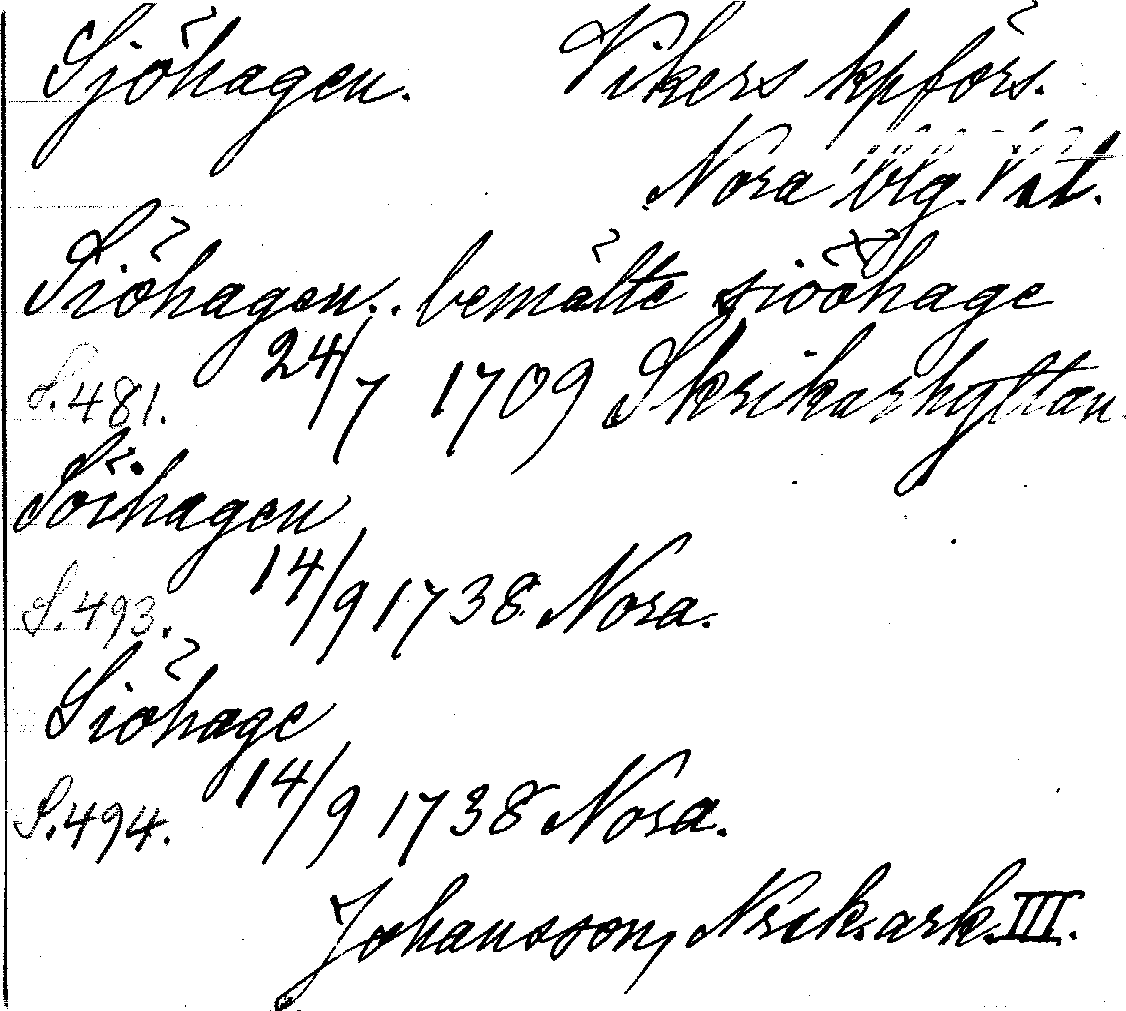 Sjöhagen. Vikers kpförs.
Nora blg. Vstl.
Siöhagen.. bemälte siööhage
S.481. 24/7 1709 Skrikarhyttan
Söihagen
S.493. 14/9 1738 Nora.
Siöhage
S.494. 14/9 1738 Nora.
Johansson, Nrik. ark. III.